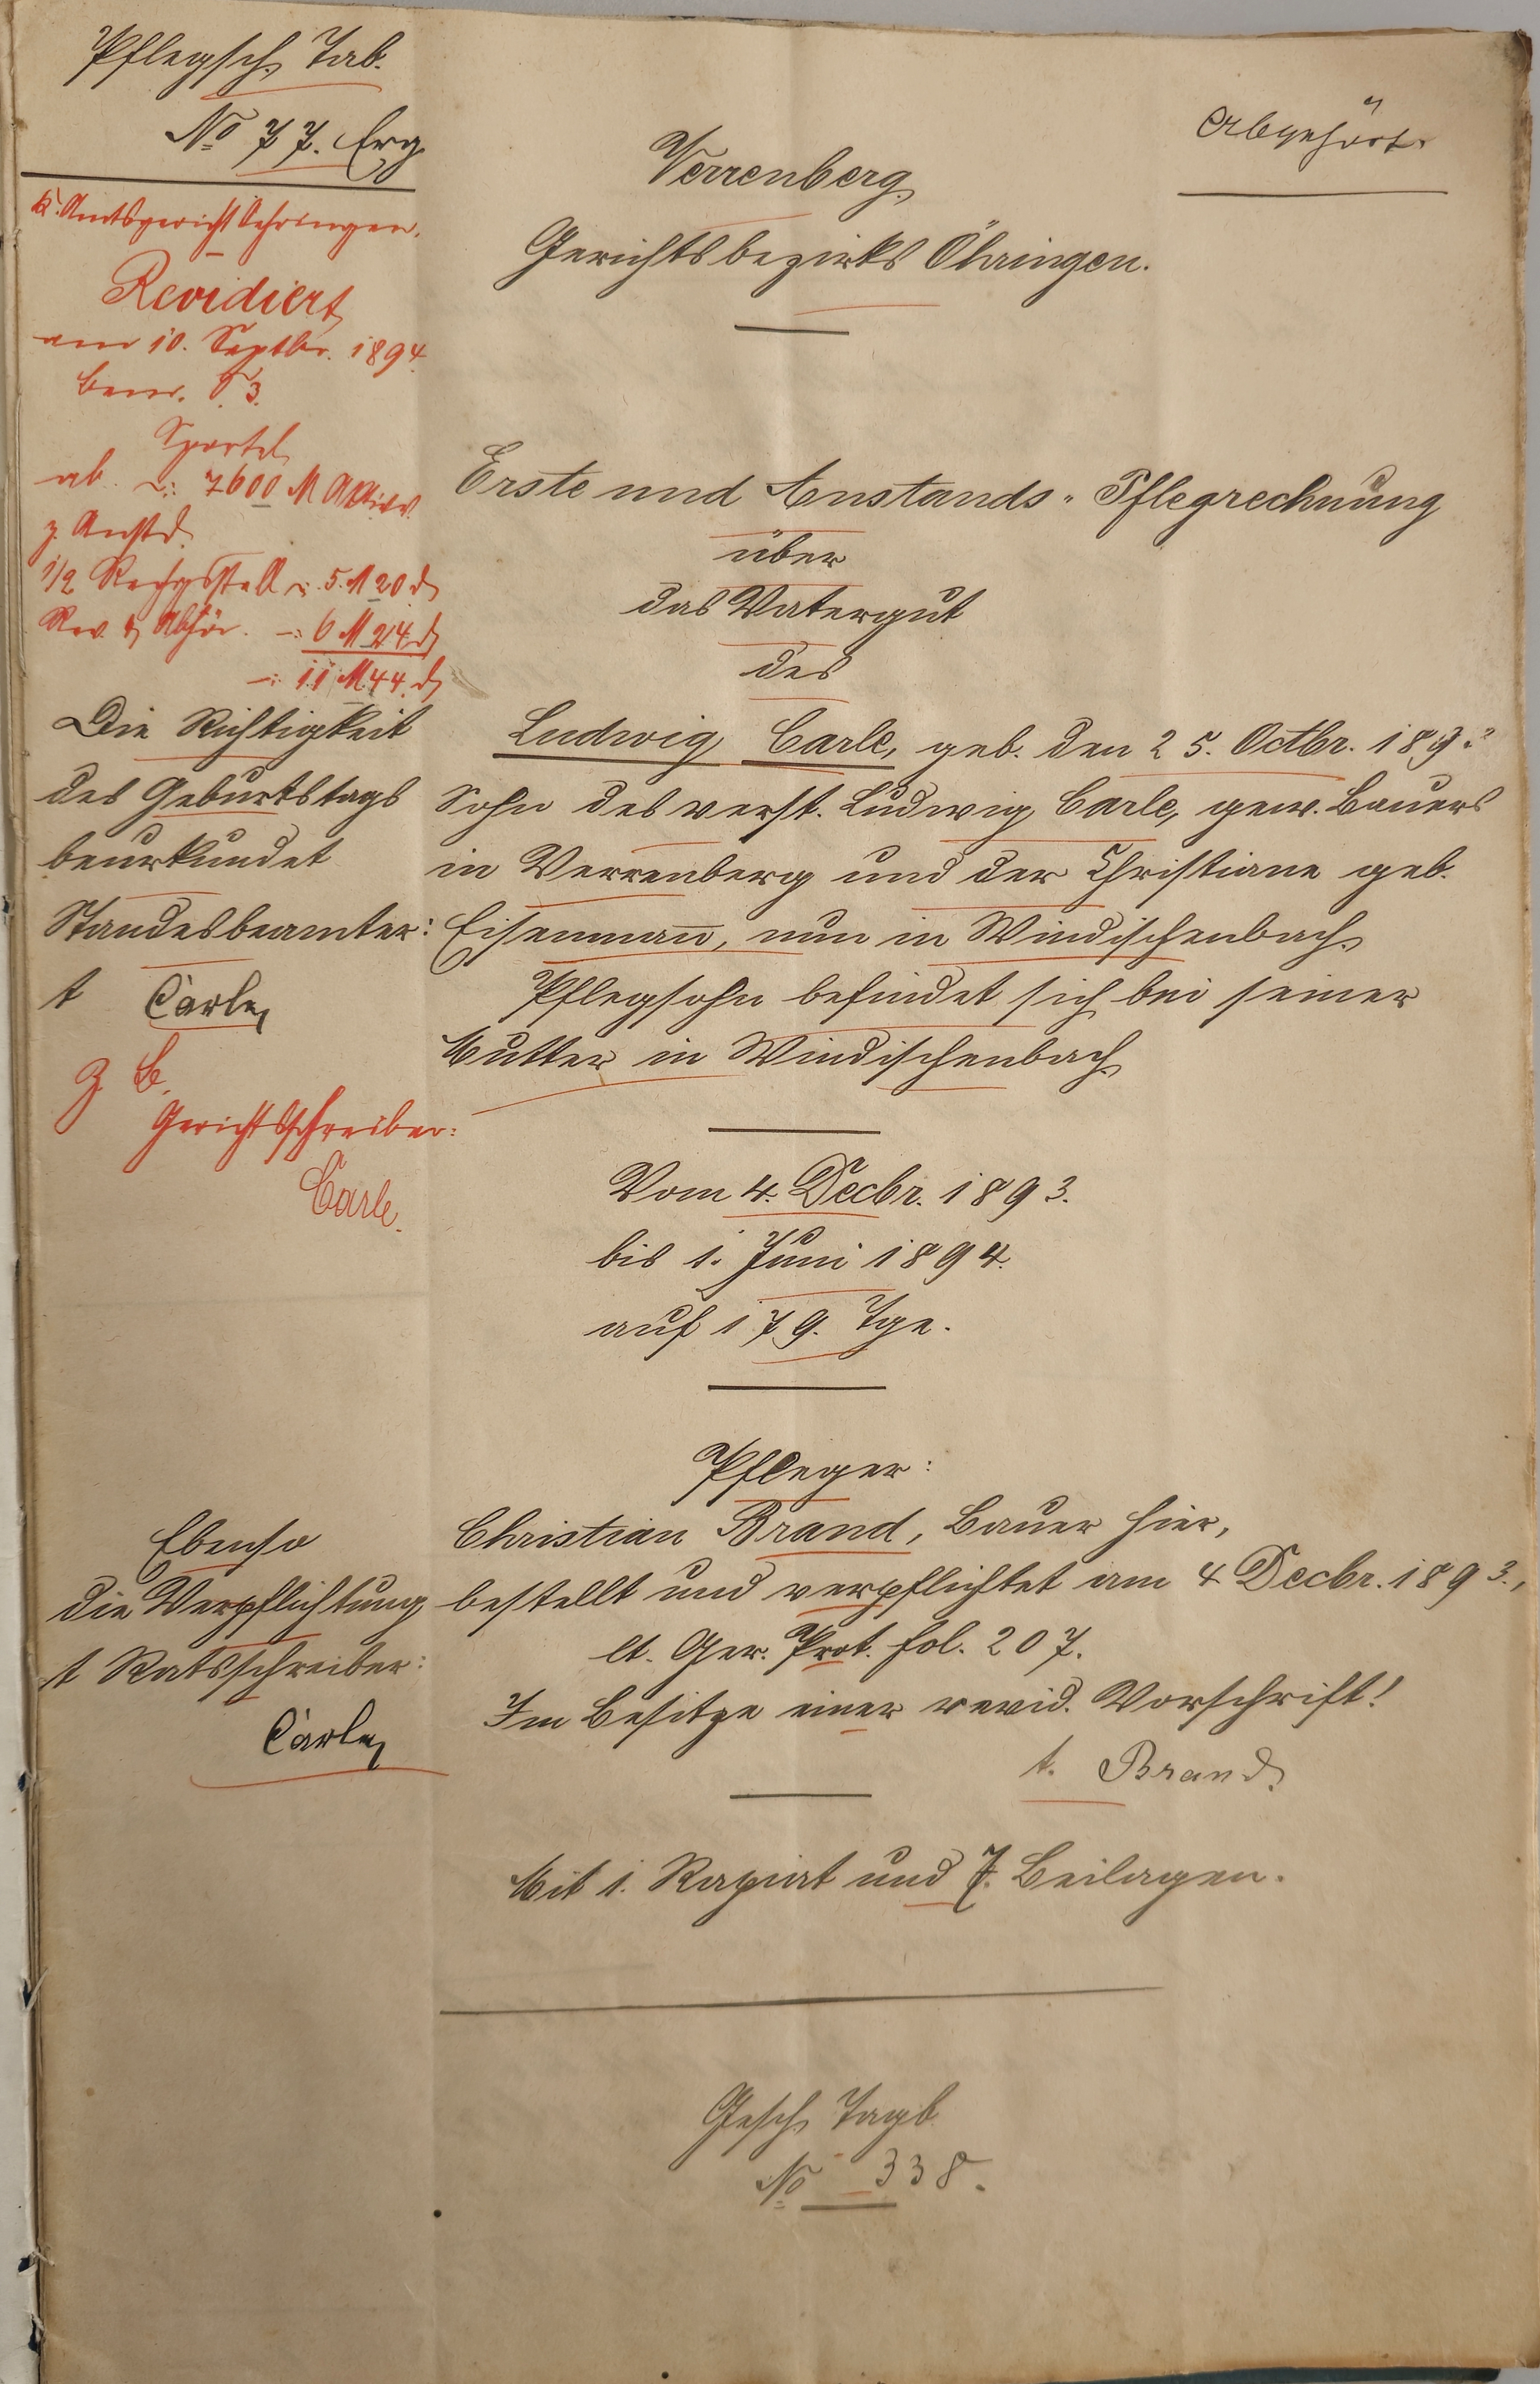 Pflegsch. Tab.
No 77. Erg.
Abgehört.
K. Amtsgericht Oehringen.
Revidiert
am 10. Septbr. 1894.
Bem. 3.
Sportel
ab 7600 M Aktiv.
z. Anstd.
1/2 Rechgsstell 5. M 20 d
Rev. & Abhör. 6 M 24 d
11 M 44. d
Die Richtigkeit
des Geburtstags
beurkundet
Standesbeamter:
t Carle
Z. B.
Gerichtsschreiber:
Carle.
Ebenso
die Verpflichtung
t Ratsschreiber:
Carle
Verrenberg.
Gerichtsbezirks Öhringen.
Erste und Anstands-Pflegrechnung
über
das Vatergut
des
Ludwig Carle, geb. den 25. Octbr.
Sohn des verst. Ludwig Carle, gew. Bauers
in Verrenberg und der Christiane geb.
Eisenmann, nun in Windischenbach.
Pflegsohn befindet sich bei seiner
Mutter in Windischenbach.
Vom 4. Decbr. 1893.
bis 1. Juni 1894.
auf 179. Tge.
Pfleger:
Christian Brand, Bauer hier,
bestellt und verpflichtet am 4 Decbr. 1893.,
lt. Ger. Prot. fol. 207.
Im Besitze einer revid. Vorschrift!
t. Brand.
Mit 1. Rapiat und 7. Beilagen.
Gesch. Tagb.
No 338.